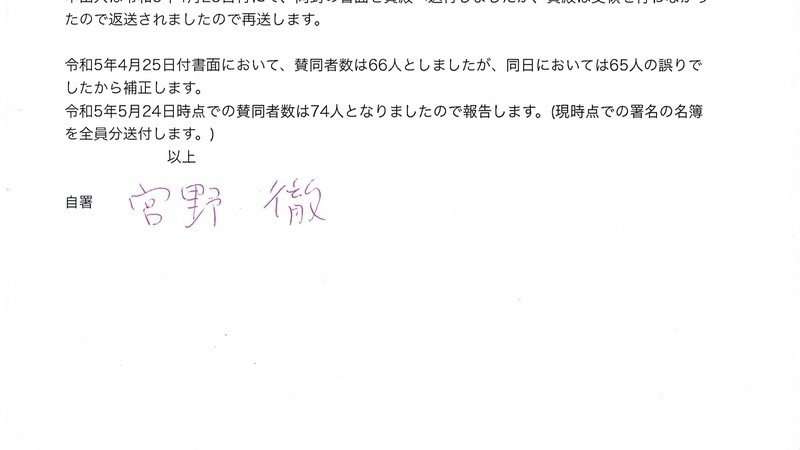 たので返送されましたので再送します。
令和5年4月25日付書面において、賛同者数は66人としましたが、同日においては65人の誤りで
したから補正します。
令和5年5月24日時点での賛同者数は74人となりましたので報告します。(現時点での署名の名簿
を全員分送付します。)
以上
自署 宮野 徹